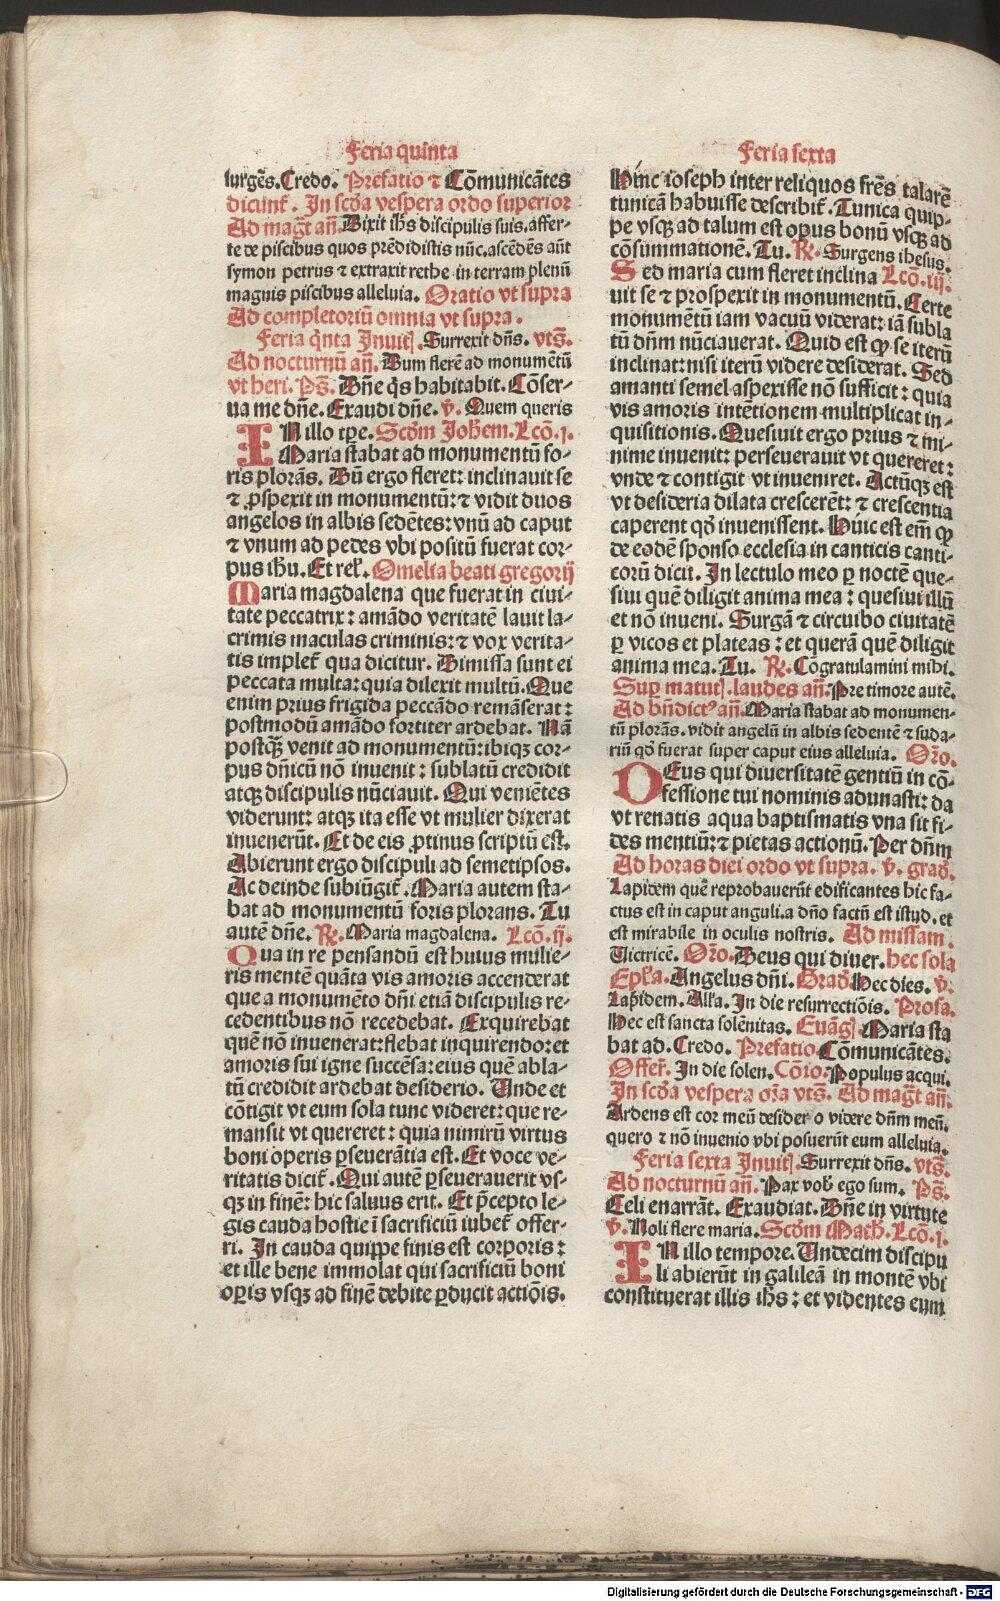 Feria quinta
surgēs. Credo. Prefatio ⁊ Cōmunicātes
dicunt᷑. In scđa vespera ordo superior
Ad mag̃t añ. Dixit ih̄s discipulis suis. affer-
te de piscibus quos prēdidistis nūc. ascēdēs aūt
symon petrus ⁊ extraxit rethe in terram plenū
magnis piscibus alleluia. Oratio vt supra
Ad completoriū omnia vt supra.
Feria q̇nta Inuit. Surrexit dn̄s. vts̄.
Ad nocturnū añ. Dum flerē ad monumētū
vt heri. Ps̄. Dn̄e q̇s habitabit. Cōser-
ua me dn̄e. Exaudi dn̄e. v̄. Quem queris
IN illo tp̄e. Scd̄m Joh̄em. Lcō. j.
Maria stabat ad monumentū fo-
ris plorās. Dū ergo fleret: inclinauit se
⁊ ꝓspexit in monumentū: ⁊ vidit duos
angelos in albis sedētes: vnū ad caput
⁊ vnum ad pedes vbi positū fuerat cor-
pus ih̄u. Et rel̄. Omelia beati gregorij
Maria magdalena que fuerat in ciui-
tate peccatrix: amādo veritatē lauit la-
crimis maculas criminis: ⁊ vox verita-
tis implet᷑ qua dicitur. Dimissa sunt ei
peccata multa: quia dilexit multū. Que
enim prius frigida peccādo remāserat:
postmodū amādo fortiter ardebat. Nā
postꝗ̄ venit ad monumentū: ibiqꝫ cor-
pus dn̄icū nō inuenit: sublatū credidit
atqꝫ discipulis nūciauit. Qui veniētes
viderunt: atqꝫ ita esse vt mulier dixerat
inuenerūt. Et de eis ꝓtinus scriptū est.
Abierunt ergo discipuli ad semetipsos.
Ac deinde subiūgit᷑. Maria autem sta-
bat ad monumentū foris plorans. Tu
autē dn̄e. ℟. Maria magdalena. Lcō. ij.
Qua in re pensandū est huius mulie-
ris mentē quāta vis amoris accenderat
que a monumēto dn̄i etiā discipulis re-
cedentibus nō recedebat. Exquirebat
quē nō inuenerat: flebat inquirendo: et
amoris sui igne succēsa: eius quē abla-
tū credidit ardebat desiderio. Unde et
cōtigit vt eum sola tunc videret: que re-
mansit vt quereret: quia nimirū virtus
boni operis ꝑseuerātia est. Et voce ve-
ritatis dicit᷑. Qui autē ꝑseuerauerit vs-
qꝫ in finē: hic saluus erit. Et p̄cepto le-
gis cauda hostie ī sacrificiū iubet᷑ offer-
ri. In cauda quippe finis est corporis:
et ille bene immolat qui sacrificiū boni
oꝑis vsqꝫ ad finē debite ꝑducit actiōis.
Feria sexta
Hinc ioseph inter reliquos fr̄es talarē
tunicā habuisse describit᷑. Tunica quip-
pe vsqꝫ ad talum est opus bonū vsqꝫ ad
cōsummationē. Tu. ℟. Surgens ihesus.
Sed maria cum fleret inclina Lcō. iij.
uit se ⁊ prospexit in monumentū. Certe
monumētū iam vacuū viderat: iā subla
tū dn̄m nūciauerat. Quid est ꝙ se iterū
inclinat: nisi iterū videre desiderat. Sed
amanti semel aspexisse nō sufficit: quia
vis amoris intētionem multiplicat in-
quisitionis. Quesiuit ergo prius ⁊ mi-
nime inuenit: perseuerauit vt quereret:
vnde ⁊ contigit vt inueniret. Actūqꝫ est
vt desideria dilata crescerēt: ⁊ crescentia
caperent qđ inuenissent. Hinc est em̄ ꝙ
de eodē sponso ecclesia in canticis canti-
corū dicit. In lectulo meo ꝑ noctē que-
siui quē diligit anima mea: quesiui illū
et nō inueni. Surgā ⁊ circuibo ciuitatē
ꝑ vicos et plateas: et querā quē diligit
anima mea. Tu. ℟. Cōgratulamini mihi.
Sup̄ matut. laudes añ. Pre timore autē.
Ad bn̄dictꝰ añ. Maria stabat ad monumen-
tū plorās. vidit angelū in albis sedentē ⁊ suda-
riū qđ fuerat super caput eius alleluia. Or̄o.
DEus qui diuersitatē gentiū in cō-
fessione tui nominis adunasti: da
vt renatis aqua baptismatis vna sit fi-
des mentiū: ⁊ pietas actionū. Per dn̄m
Ad horas diei ordo vt supra. v̄. grad̄.
Lapidem quē reprobauerūt edificantes hic fa-
ctus est in caput anguli. a dn̄o factū est istud. et
est mirabile in oculis nostris. Ad missam.
Uictricē. Or̄o. Deus qui diuer. hec sola
Epl̄a. Angelus dn̄i. Grad̄. Hec dies. v̄.
Lapidem. Al̄la. In die resurrectiōis. Prosa.
Hec est sancta solēnitas. Euāg. Maria sta
bat ad. Credo. Prefatio. Cōmunicātes.
Offer̄. In die solen. Cōio. Populus acqui.
In scđa vespera or̄a vts̄. Ad mag̃t añ.
Ardens est cor meū desidero videre dn̄m meū.
quero ⁊ nō inuenio vbi posuerūt eum alleluia.
Feria sexta Inuit. Surrexit dn̄s. vts̄.
Ad nocturnū añ. Pax vob̄ ego sum. Ps̄.
Celi enarrāt. Exaudiat. Dn̄e in virtute
v̄. Noli flere maria. Scd̄m Math̄. Lcō. j.
IN illo tempore. Undecim discipu
li abierūt in galileā in montē vbi
constituerat illis ih̄s: et videntes eum
Digitalisierung gefördert durch die Deutsche Forschungsgemeinschaft - DFG